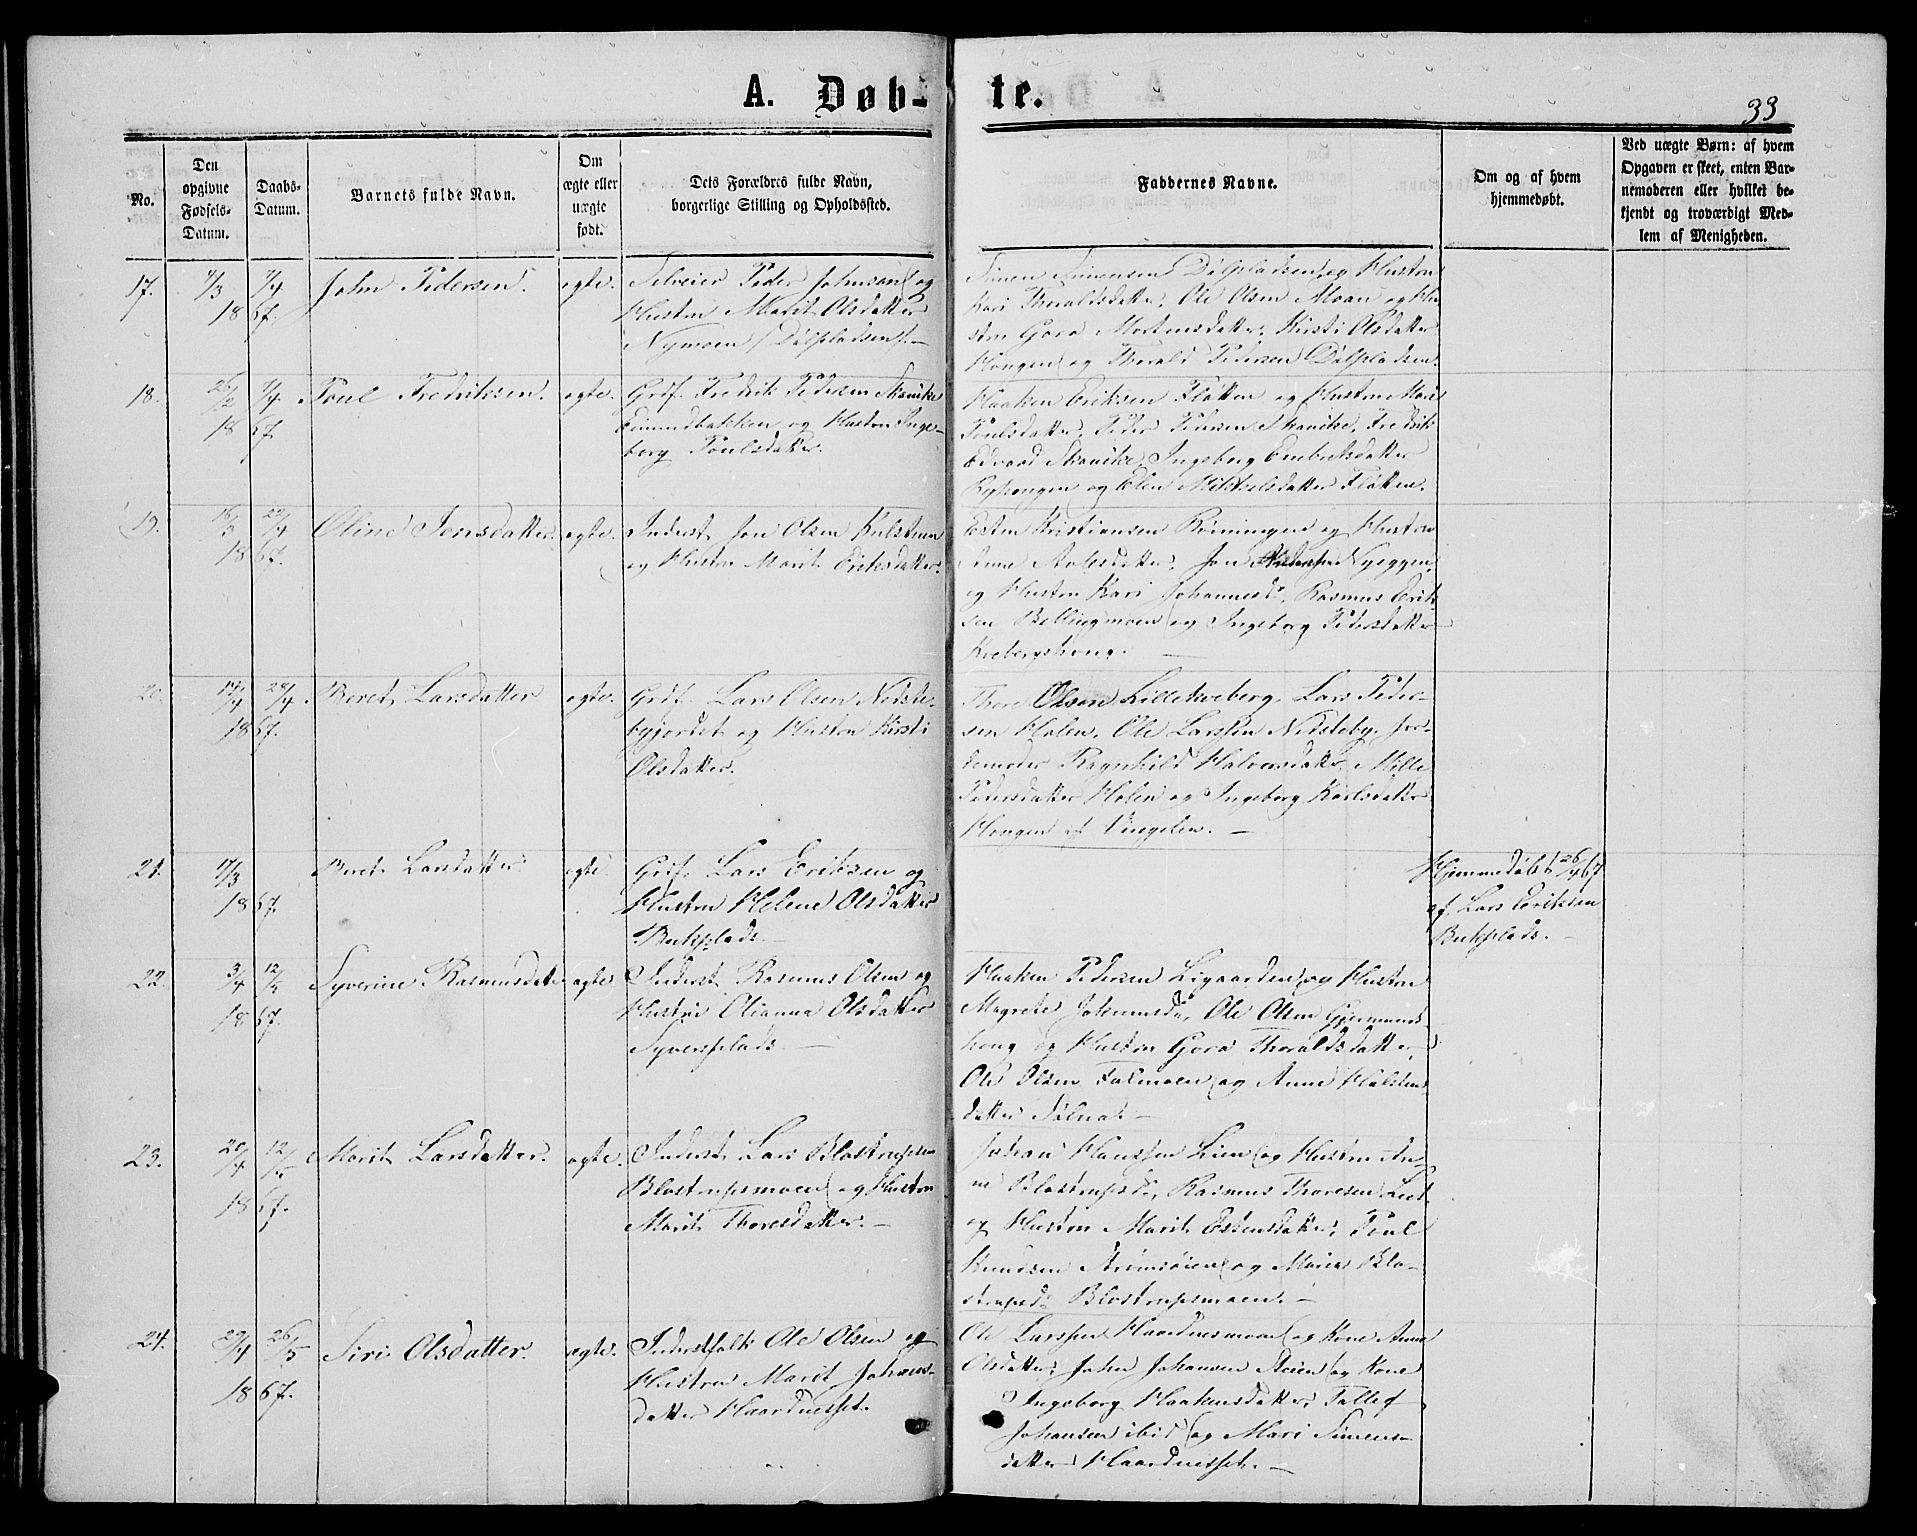 A. Døb-
te.
33
No.
Den
opgivne
Fødsels-
Datum.
Daabs-
Datum.
Barnets fulde Navn.
Om
ægte eller
uægte
født.
Dets Forældres fulde Navn,
borgerlige Stilling og Opholdssted.
Faddernes Navne.
Om og af hvem
hjemmedøbt.
Ved uægte Børn: af hvem
Opgaven er skeet, enten Bar-
nemoderen eller hvilket be-
kjendt og troværdigt Med-
lem af Menigheden.
17.
7/4
1867.
John Pedersen.
egte.
Selveier Peder Johnsen og
Hustru Marit Olsdatter
Nymoen /Dalspladsen/.
Simen Simensen Dalspladsen, og Hustru
Kari Thoraldsdatter, Ole Olsen Moan og Hu
stru Gora Mortensdatter, Kirsti Olsdatter
Hougen og Thorald Pedersen Dalspladsen.
18.
26/2
7/4
1867.
Poul Fredriksen.
egte.
Grdf. Fredrik Pedersen Skancke
og Hustru Inge-
borg Poulsdatter.
Haaken Eriksen Fløtten og Hustru Mari
Poulsdatter, Peder Pedersen Skancke, Fredrik
Edvard Skancke, Ingeborg Endriksdatter
Ryhougen og Elen Mikkelsdatter Fløtten.
19.
1867.
Oline Jonsdatter.
egte.
Inderst Jon Olsen
og Hustru Marit Eriksdatter.
Esten Kristiansen Røiningen og Hustru
Anne Jon Nyeggen,
og Hustru Kari Johannesd., Rasmus Erik
sen Bellingmoen og Ingeborg Pedersdatter
Kvebergshoug.
20.
28/4
1867.
Beret Larsdatter
egte.
Grdf. Lars Olsen Nedste-
bygjordet og Hustru Kirsti
Olsdatter.
Thore Olsen Lillekveberg, Lars Peder-
sen Holen, Ole Larssen Nedsteby, Jor-
demoder Ragnhild Halvorsdatter, Mille
Pedersdatter Holen og Ingeborg Karlsdatter
Hougen af Vingelen.
21.
17/3
1867.
Beret Larsdatter
egte.
Grdf. Lars Eriksen og
Hustru Helene Olsdatter
Bukplads.
Hjemmedøbt 26/4 67
af Lars Eriksen
Bukplads.
22.
3/4
12/5
1867.
Syverine Rasmusdatter
egte
Inderst Rasmus Olsen og
Hustru Olianna Olsdatter
Syverplads.
Haaken Pedersen Ligaarden og Hustru
Magrete Johannesd., Ole Olsen Gjermunds-
houg og Hustru Gora Thoraldsdatter,
Ole Olsen Falmoen og Anne Halstens
datter Tolna.
23.
20/4
12/5
1867.
Marit Larsdatter.
egte.
Inderst Lars Blostrupsen
Blostrupsmoen og Hustru
Marit Thoresdatter.
Johan Hanssen Lien og Hustru An-
ne Blostrupsd., Rasmus Thoresen
og Hustru Marit Estensdatter, Poul
Knudsen Strømsøien og Maria Blo-
strupsd. Blostrupsmoen.
24.
29/4
26/5
1867.
Siri Olsdatter.
egte.
Inderstfolk Ole Olsen og
Hustru Marit Johans-
datter Haardnesset.
Ole Larssen Haardnesmoen og Kone Anne
Olsdatter, John Johansen Aaien og Kone
Ingeborg Haakensdatter, Tollef
Johansen ibid og Mari Simens-
datter Haardnesset.